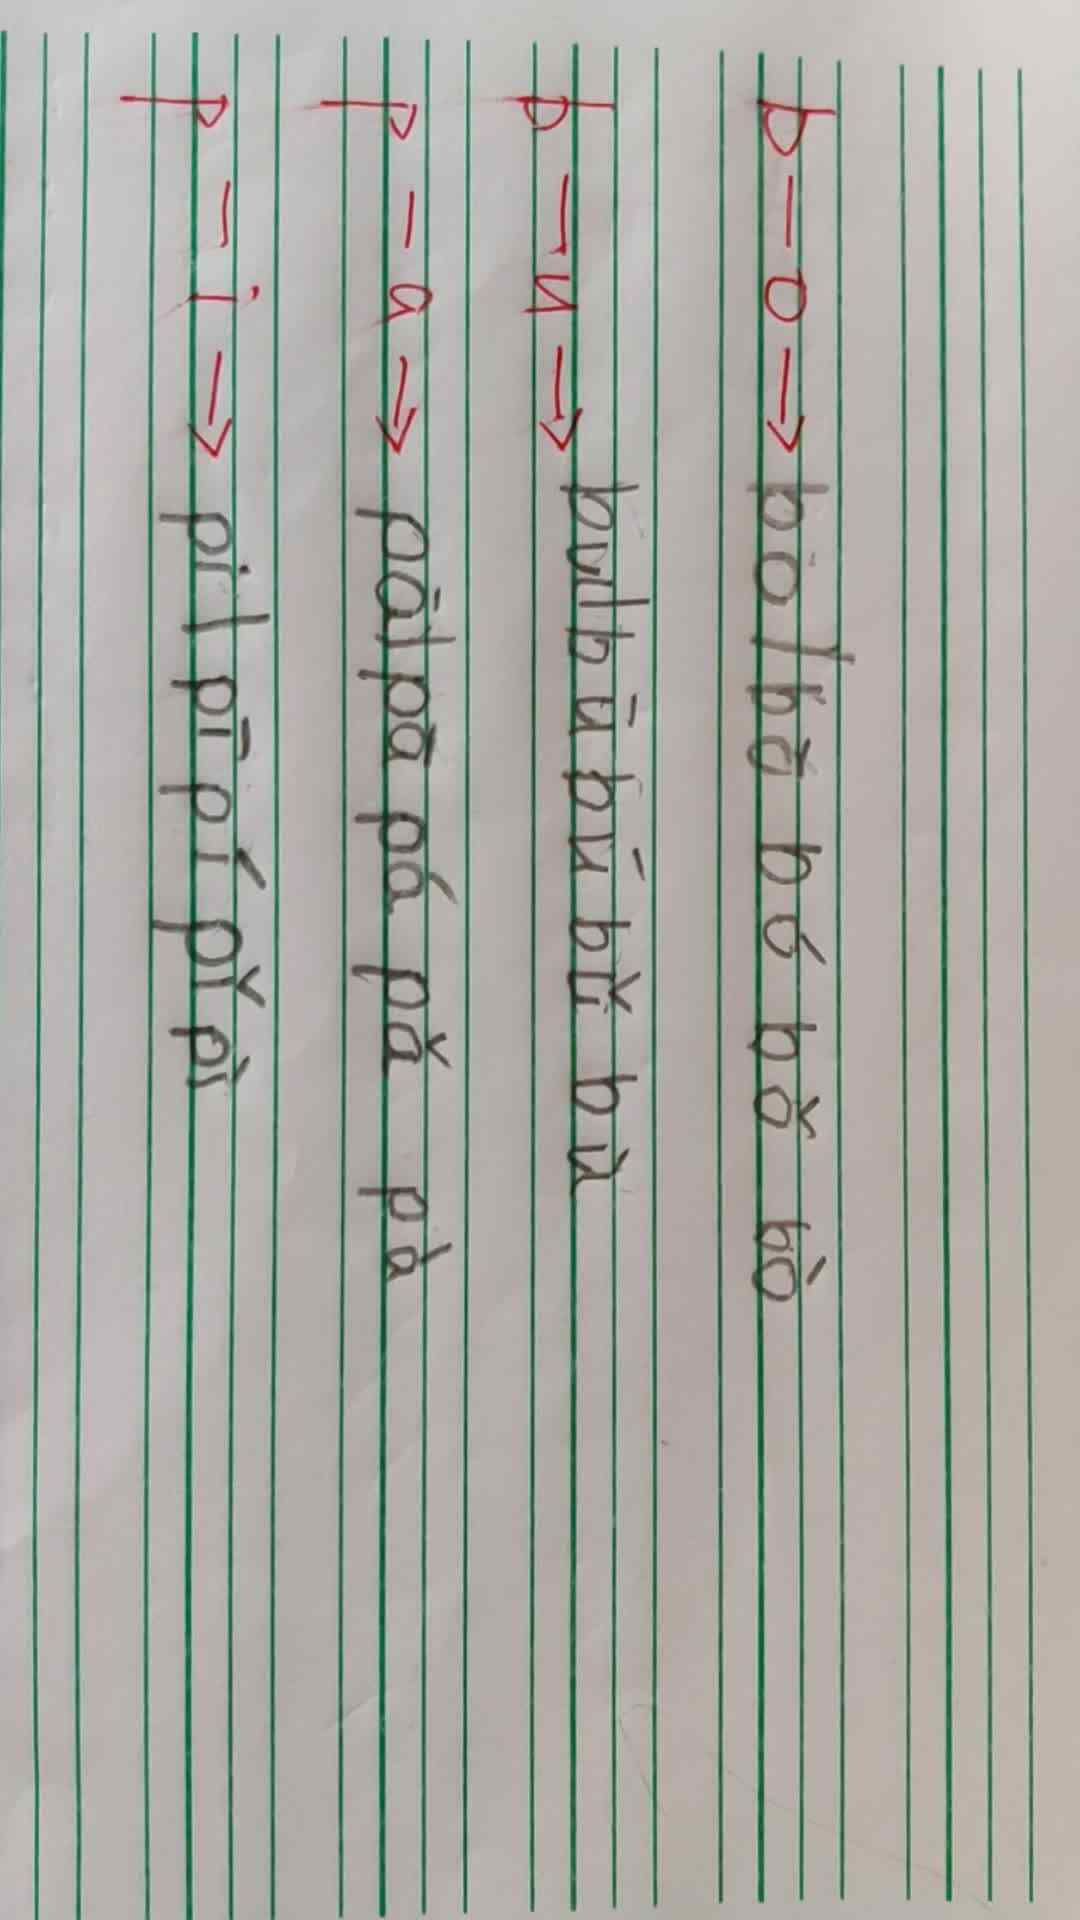 b-o→bo/bō bó bǒ bò
b-u→bu|bū bú bǔ bù
p-a→pā|pā pá pǎ pà
p-i→pi|pī pí pǐ pì